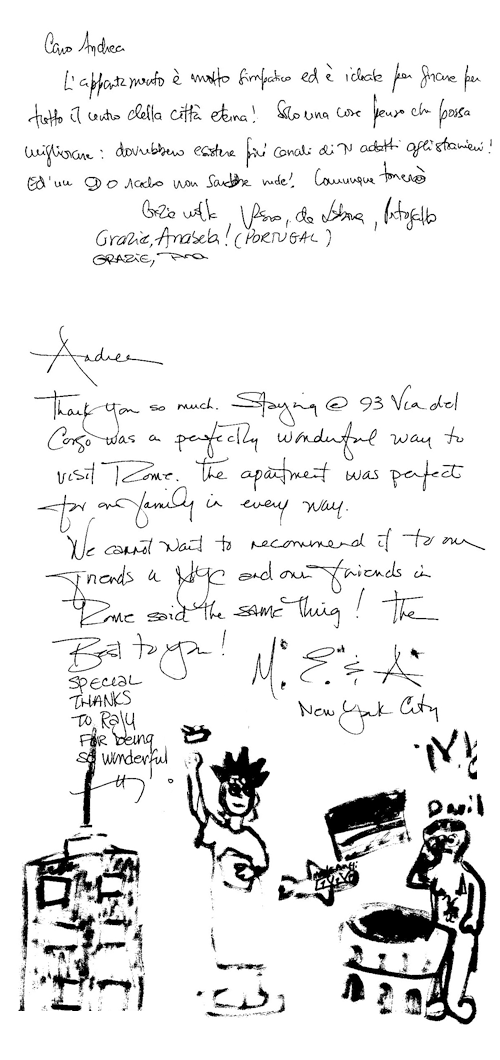 Caro Andrea
L'appartamento è molto simpatico ed è ideale per girare per
tutto il centro della città eterna! Solo una cosa penso che possa
migliorare: dovrebbero esistere più canali di TV adatti agli stranieri!
Ed un radio non sarebbe male! Comunque tornerò
Grazie mille, da Lisbona, Portogallo
Grazie, Anabela! (PORTUGAL)
GRAZIE,
Andrea
Thank you so much. Staying @ 93 Via del
Corso was a perfectly wonderful way to
visit Rome. The apartment was perfect
for our family in every way.
We cannot wait to recommend it to our
friends in NYC and our friends in
Rome said the same thing! The
Best to you! M. E. & A
New York City
SPECIAL
THANKS
To Raju
FOR being
so wonderful